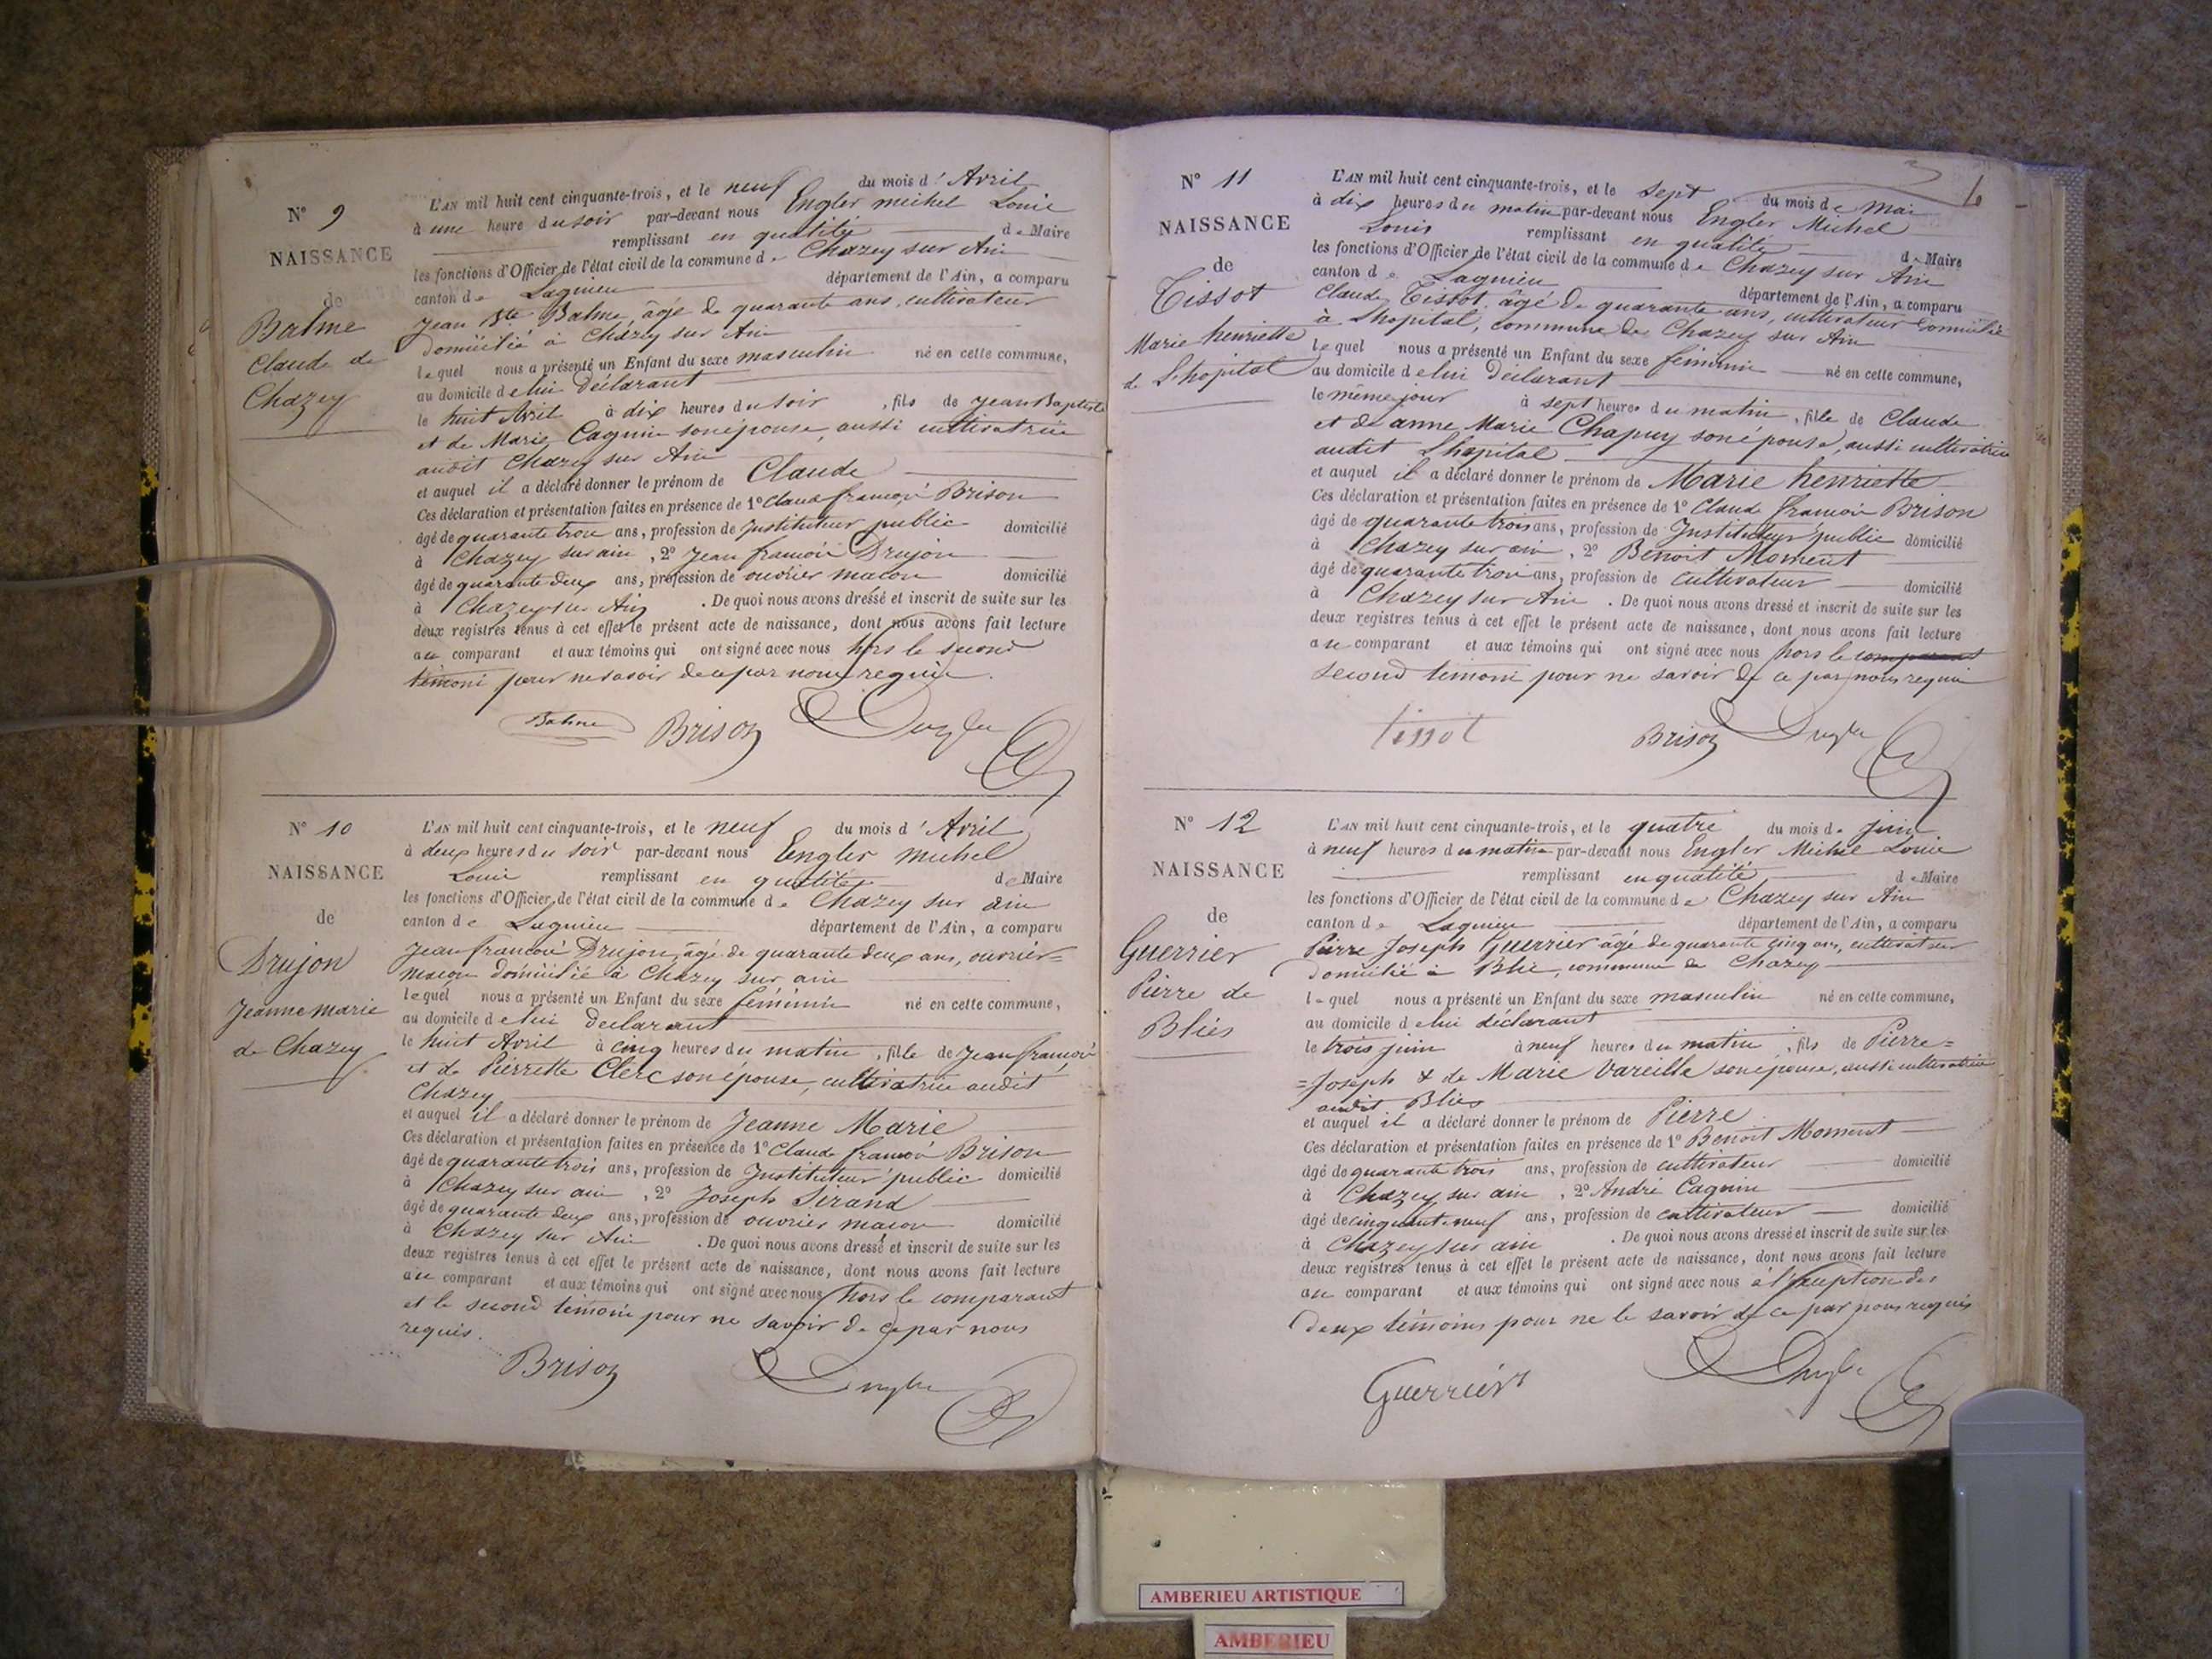 N° 9
NAISSANCE
de
Balme
Claude de
Chazey
L'AN mil huit cent cinquante-trois, et le neuf du mois d'Avril
à une heure du soir par-devant nous Engler michel Louis
remplissant en qualité de Maire
les fonctions d'Officier de l'état civil de la commune de Chazey sur Ain
canton de Lagnieu département de l'Ain, a comparu
Jean Bte Balme, âgé de quarante ans, cultivateur
domicilié à Chazey sur Ain
lequel nous a présenté un Enfant du sexe masculin né en cette commune,
au domicile de lui déclarant
le huit Avril à dix heures du soir, fils de Jean Baptiste
et de Marie Cagnin son épouse, aussi cultivatrice
audit Chazey sur Ain
et auquel il a déclaré donner le prénom de Claude
Ces déclaration et présentation faites en présence de 1° Claude françois Brison
âgé de quarante trois ans, profession de Instituteur public domicilié
à Chazey sur ain, 2° Jean françois Drujon
âgé de quarante deux ans, profession de ouvrier maçon domicilié
à Chazey sur Ain. De quoi nous avons dressé et inscrit de suite sur les
deux registres tenus à cet effet le présent acte de naissance, dont nous avons fait lecture
au comparant et aux témoins qui ont signé avec nous hors le second
témoin pour ne savoir de ce par nous requis.
Balme Brison Engler
N° 10
NAISSANCE
de
Drujon
Jeanne marie
de Chazey
L'AN mil huit cent cinquante-trois, et le neuf du mois d'Avril
à deux heures du soir par-devant nous Engler michel
Louis remplissant en qualité de Maire
les fonctions d'Officier de l'état civil de la commune de Chazey sur ain
canton de Lagnieu département de l'Ain, a comparu
Jean françois Drujon, âgé de quarante deux ans, ouvrier=
maçon domicilié à Chazey sur ain
lequel nous a présenté un Enfant du sexe féminin né en cette commune,
au domicile de lui declarant
le huit Avril à cinq heures du matin, fille de Jean françois
et de Pierrette Clerc son épouse, cultivatrice audit
Chazey
et auquel il a déclaré donner le prénom de Jeanne Marie
Ces déclaration et présentation faites en présence de 1° Claude françois Brison
âgé de quarante trois ans, profession de Instituteur public domicilié
à Chazey sur ain, 2° Joseph Sirand
âgé de quarante deux ans, profession de ouvrier macon domicilié
à Chazey sur Ain. De quoi nous avons dressé et inscrit de suite sur les
deux registres tenus à cet effet le présent acte de naissance, dont nous avons fait lecture
au comparant et aux témoins qui ont signé avec nous hors le comparant
et le second témoin pour ne savoir de ce par nous
requis.
Brison Engler
N° 11
NAISSANCE
de
Tissot
Marie henriette
de L'hopital
L'AN mil huit cent cinquante-trois, et le sept du mois de Mai
à dix heures du matin par-devant nous Engler Michel
Louis remplissant en qualité de Maire
les fonctions d'Officier de l'état civil de la commune de Chazey sur Ain
canton de Lagnieu département de l'Ain, a comparu
Claude Tissot, âgé de quarante ans, cultivateur domicilié
à Lhopital, commune de Chazey sur Ain
lequel nous a présenté un Enfant du sexe féminin né en cette commune,
au domicile de lui déclarant
le même jour à sept heures du matin, fille de Claude
et de anne Marie Chapuy son épouse, aussi cultivatrice
audit Lhopital
et auquel il a déclaré donner le prénom de Marie henriette
Ces déclaration et présentation faites en présence de 1° Claude françois Brison
âgé de quarante trois ans, profession de Instituteur public domicilié
à Chazey sur ain, 2° Benoit Moment
âgé de quarante trois ans, profession de cultivateur domicilié
à Chazey sur Ain. De quoi nous avons dressé et inscrit de suite sur les
deux registres tenus à cet effet le présent acte de naissance, dont nous avons fait lecture
au comparant et aux témoins qui ont signé avec nous hors le comparant
second témoin pour ne savoir de ce par nous requis
tissot Brison Engler
N° 12
NAISSANCE
de
Guerrier
Pierre de
Bliés
L'AN mil huit cent cinquante-trois, et le quatre du mois de juin
à neuf heures du matin par-devant nous Engler Michel Louis
remplissant en qualité de Maire
les fonctions d'Officier de l'état civil de la commune de Chazey sur Ain
canton de Lagnieu département de l'Ain, a comparu
Pierre Joseph Guerrier âgé de quarante cinq ans, cultivateur
domicilié à Blié, commune de Chazey
lequel nous a présenté un Enfant du sexe masculin né en cette commune,
au domicile de lui déclarant
le trois juin à neuf heures du matin, fils de Pierre=
=Joseph & de Marie Vareille son épouse, aussi cultivatrice
audit Bliés
et auquel il a déclaré donner le prénom de Pierre
Ces déclaration et présentation faites en présence de 1° Benoit Moment
âgé de quarante trois ans, profession de cultivateur domicilié
à Chazey sur ain, 2° André Cagnin
âgé de cinquante neuf ans, profession de cultivateur domicilié
à Chazey sur ain. De quoi nous avons dressé et inscrit de suite sur les
deux registres tenus à cet effet le présent acte de naissance, dont nous avons fait lecture
au comparant et aux témoins qui ont signé avec nous à l'exception des
deux témoins pour ne le savoir de ce par nous requis
Guerrier Engler
AMBERIEU ARTISTIQUE
AMBERIEU